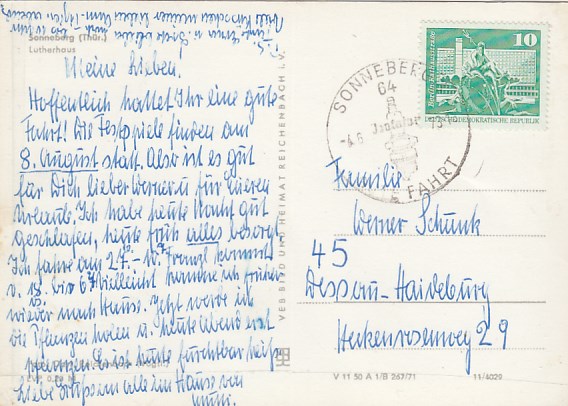 Sonneberg (Thür.)
Lutherhaus
Meine Lieben.
Hoffentlich hattet Ihr eine gute
Fahrt! Die Festspiele finden am
8. August statt. Also ist es gut
für Dich lieber Werner u. für Euren
Urlaub. Ich habe heute Nacht gut
geschlafen, heute früh alles besorgt
Ich fahre am 27.
vielleicht komme ich früher
wieder nach Hause. Jetzt werde ich
die Pflanzen holen u. heute abend erst
pflanzen. Es ist heute furchtbar heiß
Liebe Grüße an alle im Hause von
VEB BILD UND HEIMAT REICHENBACH I. V.
SONNEBERG
64
FAHRT
10
DEUTSCHE DEMOKRATISCHE REPUBLIK
Familie
Werner Schunk
45
Dessau-Haideburg
Heckenrosenweg 29
V 11 50 A 1/B 267/71
11/4029